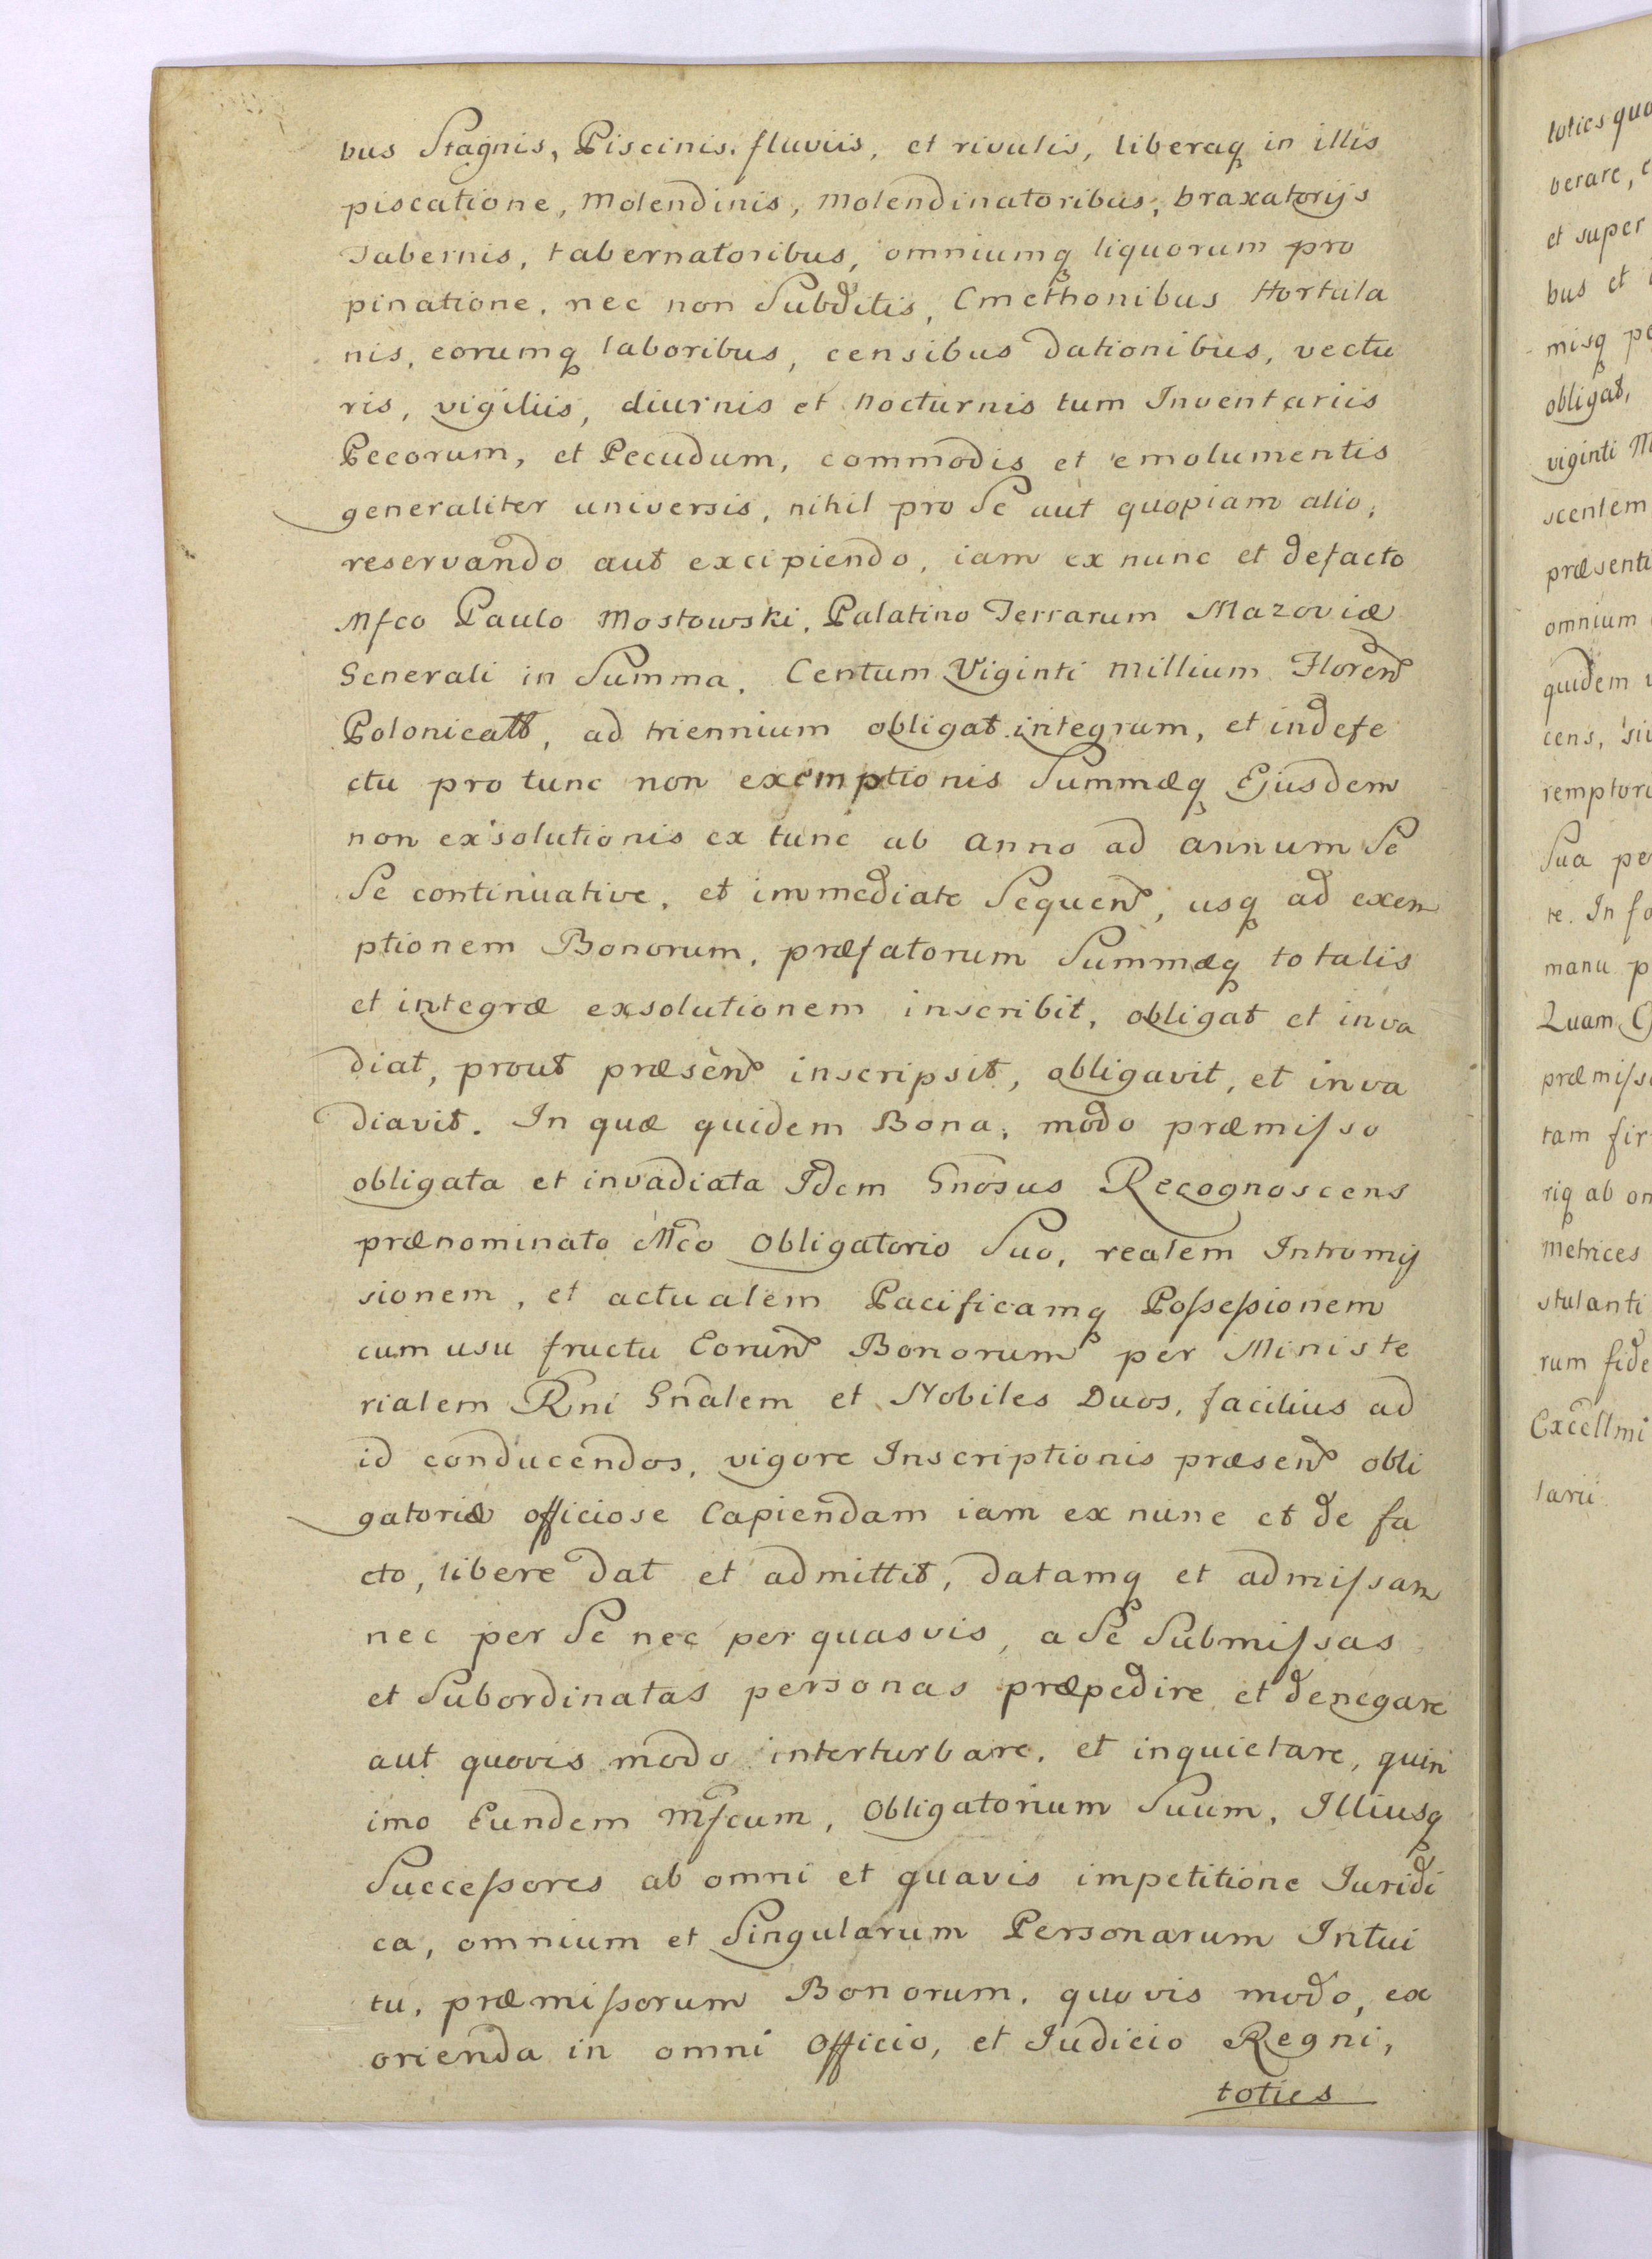 bus Stagnis, Piscinis. fluviis, et rivulis, liberaq in illis
piscatione, Molendinis, Molendinatoribus, braxatorijs
Tabernis, tabernatoribus, omniumq liquorum pro
pinatione, nec non Subditis, Cmethonibus Hortula
nis, eorumq laboribus, censibus dationibus, vectu
ris, vigiliis, diurnis et nocturnis tum Inventariis
Pecorum, et Pecudum, commodis et emolumentis
generaliter universis, nihil pro Se aut quopiam alio,
reservando aut excipiendo, iam ex nunc et defacto
Mfco Paulo Mostowski, Palatino Terrarum Mazoviæ
Generali in Summa, Centum Viginti Millium Floren
Polonicalt, ad triennium obligat integrum, et indefe
ctu pro tunc non exemptionis Summæq Ejusdem
non exsolutionis ex tunc ab anno ad annum Se
Se continuative, et immediate Sequen, usq ad exem
ptionem Bonorum, præfatorum Summæq totalis
et integræ exsolutionem inscribit, obligat et inva
diat, prout præsen inscripsit, obligavit, et inva
diavit. In quæ quidem Bona, modo præmisso
obligata et invadiata Idem Gnosus Recognoscens
prænominato Mco Obligatorio Suo, realem Intromis
sionem, et actualem Pacificamq Possessionem
cum usu fructu Eorun Bonorum per Ministe
rialem Rni Gnalem et Nobiles Duos, facilius ad
id conducendos, vigore Inscriptionis præsen obli
gatoriæ officiose Capiendam iam ex nunc et de fa
cto, libere dat et admittit, datamq et admissam
nec per Se nec per quasvis, a Se Submissas
et Subordinatas personas præpedire et denegare
aut quovis modo interturbare, et inquietare, quin
imo Eundem Mfcum, Obligatorium Suum, Illiusq
Successores ab omni et quavis impetitione Juridi
ca, omnium et Singularum Personarum Intui
tu, præmissorum Bonorum, quovis modo, ex
orienda in omni Officio, et Judicio Regni,
toties
toties quo
berare,
et super
bus et
misq pe
obligat,
viginti M
scentem
præsenti
omnium
quidem
cens,
remptori
Sua pe
te. In fo
manu p
Quam
præmiss
tam fir
riq ab om
Metrices
stulanti
rum fide
Excellmi
larii